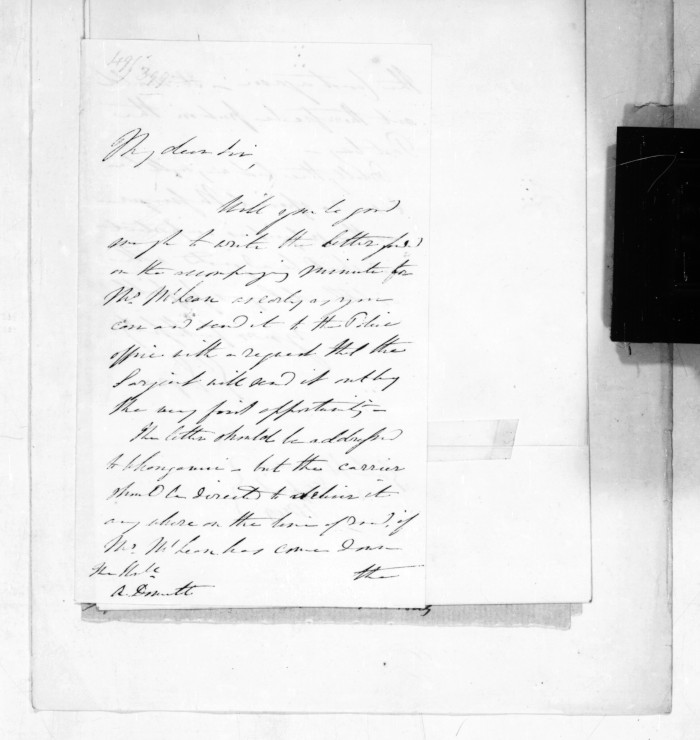 49/399
My dear Sir,
Will you be good
enough to write the letter
on the accompanying minute for
Mr. McLean as early as you
can and send it to the Police
office with a request that the
Sergeant will send it out by
the very first opportunity -
The letter should be addressed
to - but the carrier
should be directed to deliver it
any where on the line of road, if
Mr. McLean has come down
the
The Honble
A. Domett